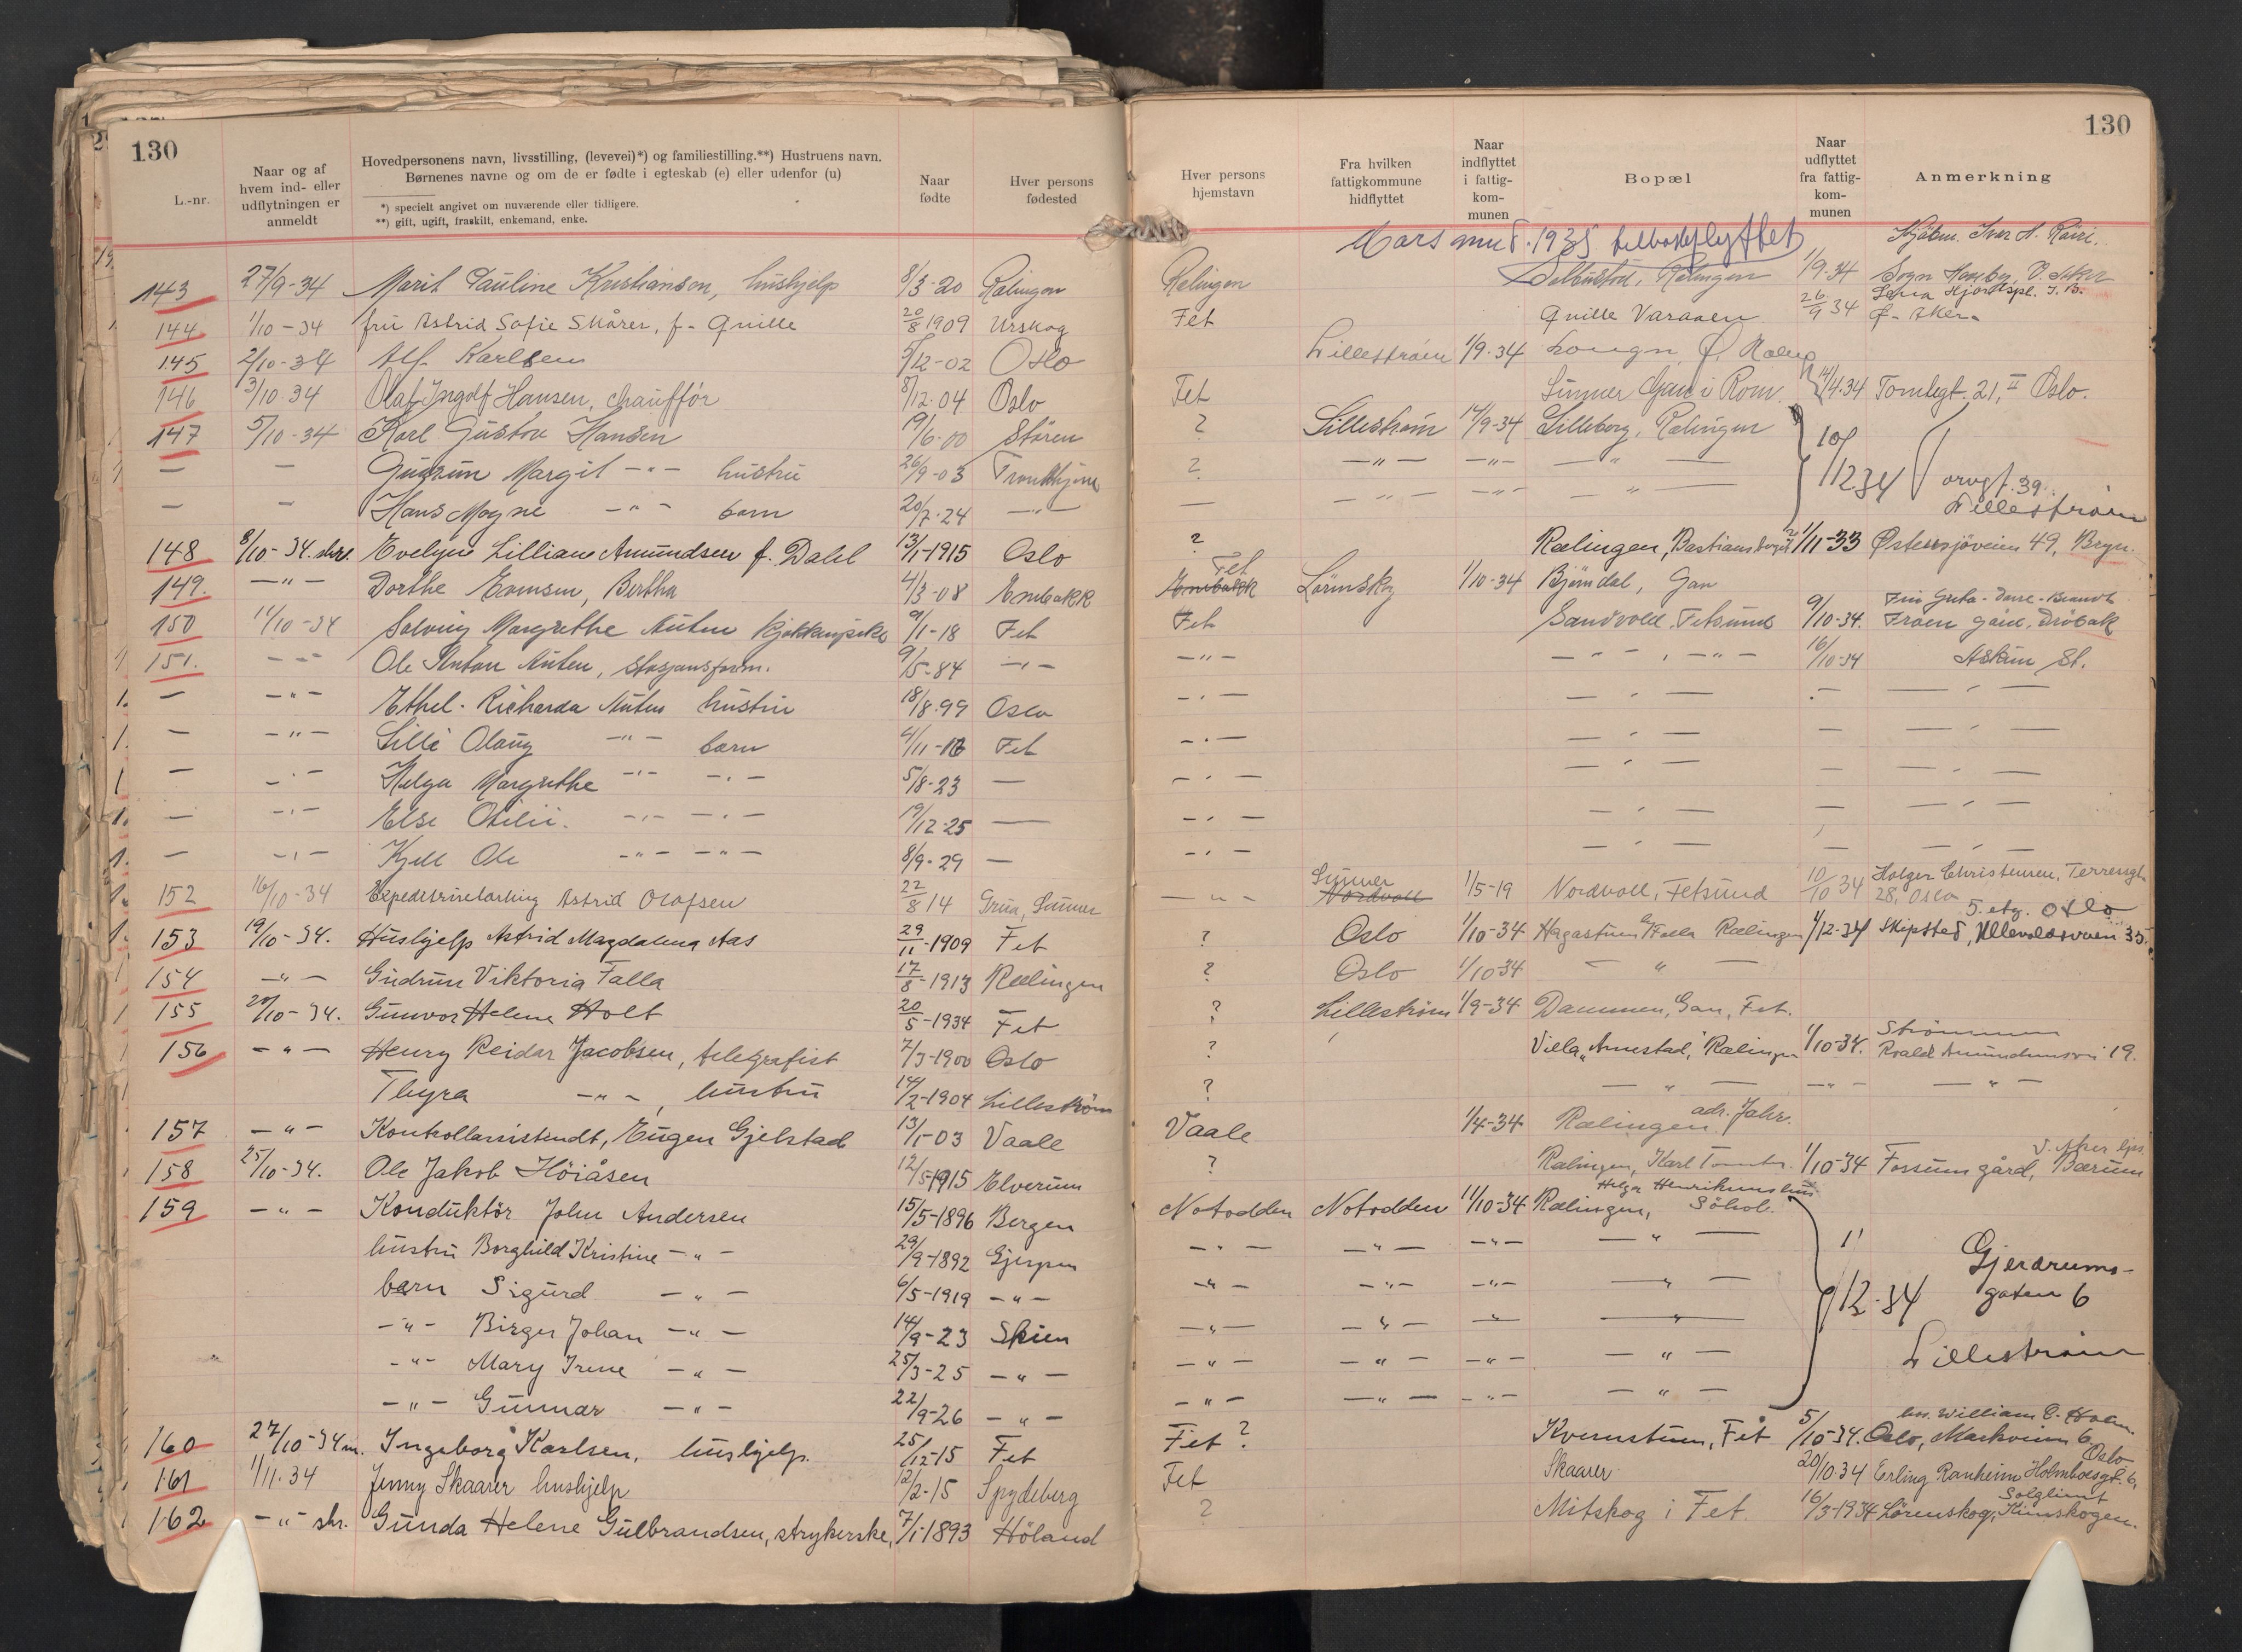 130
L.-nr.
Naar og af hvem ind- eller udflytningen er anmeldt
Hovedpersonens navn, livsstilling, (levevei)*) og familiestilling.**) Hustruens navn.
Børnenes navne og om de er fødte i egteskab (e) eller udenfor (u)
*) specielt angivet om nuværende eller tidligere.
**) gift, ugift, fraskilt, enkemand, enke.
Naar fødte
Hver persons fødested
Hver persons hjemstavn
Fra hvilken fattigkommune hidflyttet
Naar indflyttet i fattig-kom-munen
Bopæl
Naar udflyttet fra fattig-kom-munen
Anmerkning
130
Mars 1935 tilbakeflyttet
143 27/9-34 Marit Pauline Kristiansen, hushjelp 8/3-20 Rælingen Rælingen Rælingen 1/9-34 Sogn
144 1/10-34 fru Astrid Sofie Skårer, f. Quille 20/8 1909 Urskog Fet Quille Varaaen 26/9 34 Aker
145 2/10-34 Alf Karlsen 5/12-02 Oslo Lillestrøm 1/9-34
146 3/10-34 Olaf Ingolf Hansen, chauffør 8/12-04 Oslo Fet 14/4-34 Tomtegt. 21, II Oslo.
147 5/10-34 Karl Gustav Hansen 19/6-00 Stören ? Lillestrøm 14/9-34 Lilleborg, Rælingen
— — Gudrun Margit —"— hustru 26/9-03 Trondhjem ? —"— —"— —"—
— — Hans Magne —"— barn 20/7-24 —"— — —"— —"— —"—
10/12 34 39 Lillestrøm
148 8/10-34. skr. Evelyn Lilliane Amundsen f. Dahl 13/1-1915 Oslo ? Rælingen, Bastiansberget 1/11-33 Østensjöveien 49, Bryn.
149. —"— Dorthe Evensen, Bertha 4/3-08 Enebakk Enebakk Fet Lørenskog 1/10-34 Bjørndal, Gan
150 11/10-34 Solveig Margrethe Auten kjøkkenpike 9/1-18 Fet Fet Sandvold, Fetsund 9/10-34. Frøen gård, Drøbak
151. —"— Ole Anton Auten, stasjonsform. 9/5-84 —"— —"— —"— , —"— 16/10-34 Askim St.
— —"— Ethel Richarda Auten hustru 18/8-99 Oslo —"— —"— — —"—
— —"— Lilli Olaug —"— barn 4/11-16 Fet —"— —"— — —"—
— —"— Helga Margrethe —"— —"— 5/8-23 — —"— —"— — —"—
— —"— Else Otilie. —"— —"— 19/12-25 — —"— —"— — —"—
— —"— Kjell Ole —"— —"— 8/9-29 — —"— —"— —"—
152 16/10-34 Expeditricelærling Astrid Olafsen 22/8 14 Grua, Lunner —"— Lunner Nordvoll 1/5-19 Nordvoll, Fetsund 10/10 34 Holger Christensen, Terrengt. 28, Oslo
153 19/10-34. Hushjelp Astrid Magdalena Aas 29/11-1909 Fet ? Oslo 1/10-34 Hagastuen Falla Rælingen 1/12-34 Skipsted, Ullevoldsveien 35. 5. etg. Oslo
154 —"— Gudrun Viktoria Falla 17/8-1913 Rælingen ? Oslo 1/10-34 —"—
155 20/10-34. Gunvor Helene Holt 20/5-1934 Fet ? Lillestrøm 1/9-34 Dammen, Gan, Fet.
156 —"— Henry Reidar Jacobsen, telegrafist 7/3-1900 Oslo ? Villa "Arnestad", Rælingen 1/10-34. Strømmen Roald Amundsensvei 19.
Thyra —"—, hustru 14/2-1904 Lillestrøm ? —"— —"— —"—
157 —"— Kontrollassistendt, Eugen Gjelstad 13/1-03 Vaale Vaale 1/4-34 Rælingen adr. Jahr.
158 25/10-34. Ole Jakob Höiåsen 12/5-1915 Elverum ? Rælingen, Karl 1/10-34 Fossum gård, Bærum
159 —"— Konduktör John Andersen 15/5-1896 Bergen Notodden Notodden 11/10-34 Rælingen, Helga Henriksens hus
hustru Borghild Kristine —"— 29/9-1892 Gjerpen —"— —"— —"— —"—
barn Sigurd —"— 6/5-1919 —"— —"— —"— —"— —"—
—"— Birger Johan —"— 14/9-23 Skien —"— —"— —"— —"—
—"— Mary Irene —"— 25/3-25 —"— —"— —"— —"— —"—
—"— Gunnar —"— 22/9-26 —"— —"— —"— —"— —"—
1/12-34 Gjerdrums-
gaten 6
Lillestrøm
160 27/10-34 m. Ingeborg Karlsen, hushjelp. 25/12-15 Fet Fet ? Kvernstuen, Fet 5/10-34. hos. William C. Holm. Oslo, Markveien 6
161 1/11-34 Jenny Skaarer hushjelp 12/2-15 Spydeberg Fet Skaarer 20/10-34 Erling Ranheim Holmboesgt. 6, Oslo
162 —"— skr. Gunda Helene Gulbrandsen, strykerske, 7/1-1893 Höland ? Mitskog i Fet. 16/3-1934 Lörenskog, Solglimt Kurskogen.